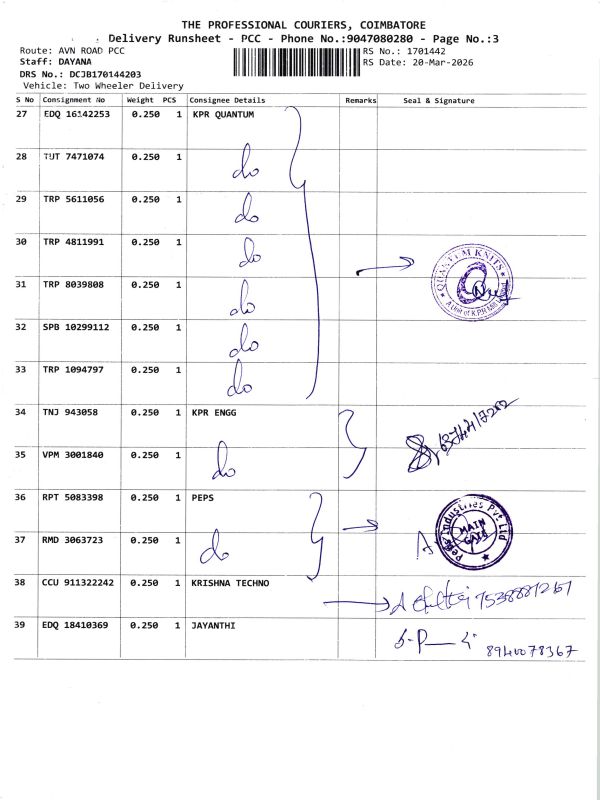 THE PROFESSIONAL COURIERS, COIMBATORE
Delivery Runsheet - PCC - Phone No.:9047080280 - Page No.:3
Route: AVN ROAD PCC RS No.: 1701442
Staff: DAYANA RS Date: 20-Mar-2026
DRS No.: DCJB170144203
Vehicle: Two Wheeler Delivery
S No Consignment No Weight PCS Consignee Details Remarks Seal & Signature
27 EDQ 16142253 0.250 1 KPR QUANTUM
28 TUT 7471074 0.250 1 do
29 TRP 5611056 0.250 1 do
30 TRP 4811991 0.250 1 do
QUANTUM KNITS
31 TRP 8039808 0.250 1 do
A Unit of K.P.R Mill Limited
32 SPB 10299112 0.250 1 do
33 TRP 1094797 0.250 1 do
34 TNJ 943058 0.250 1 KPR ENGG
35 VPM 3001840 0.250 1 do
36 RPT 5083398 0.250 1 PEPS
Peps Industries Pvt Ltd
MAIN
GATE
37 RMD 3063723 0.250 1 do
38 CCU 911322242 0.250 1 KRISHNA TECHNO
39 EDQ 18410369 0.250 1 JAYANTHI
8940078367